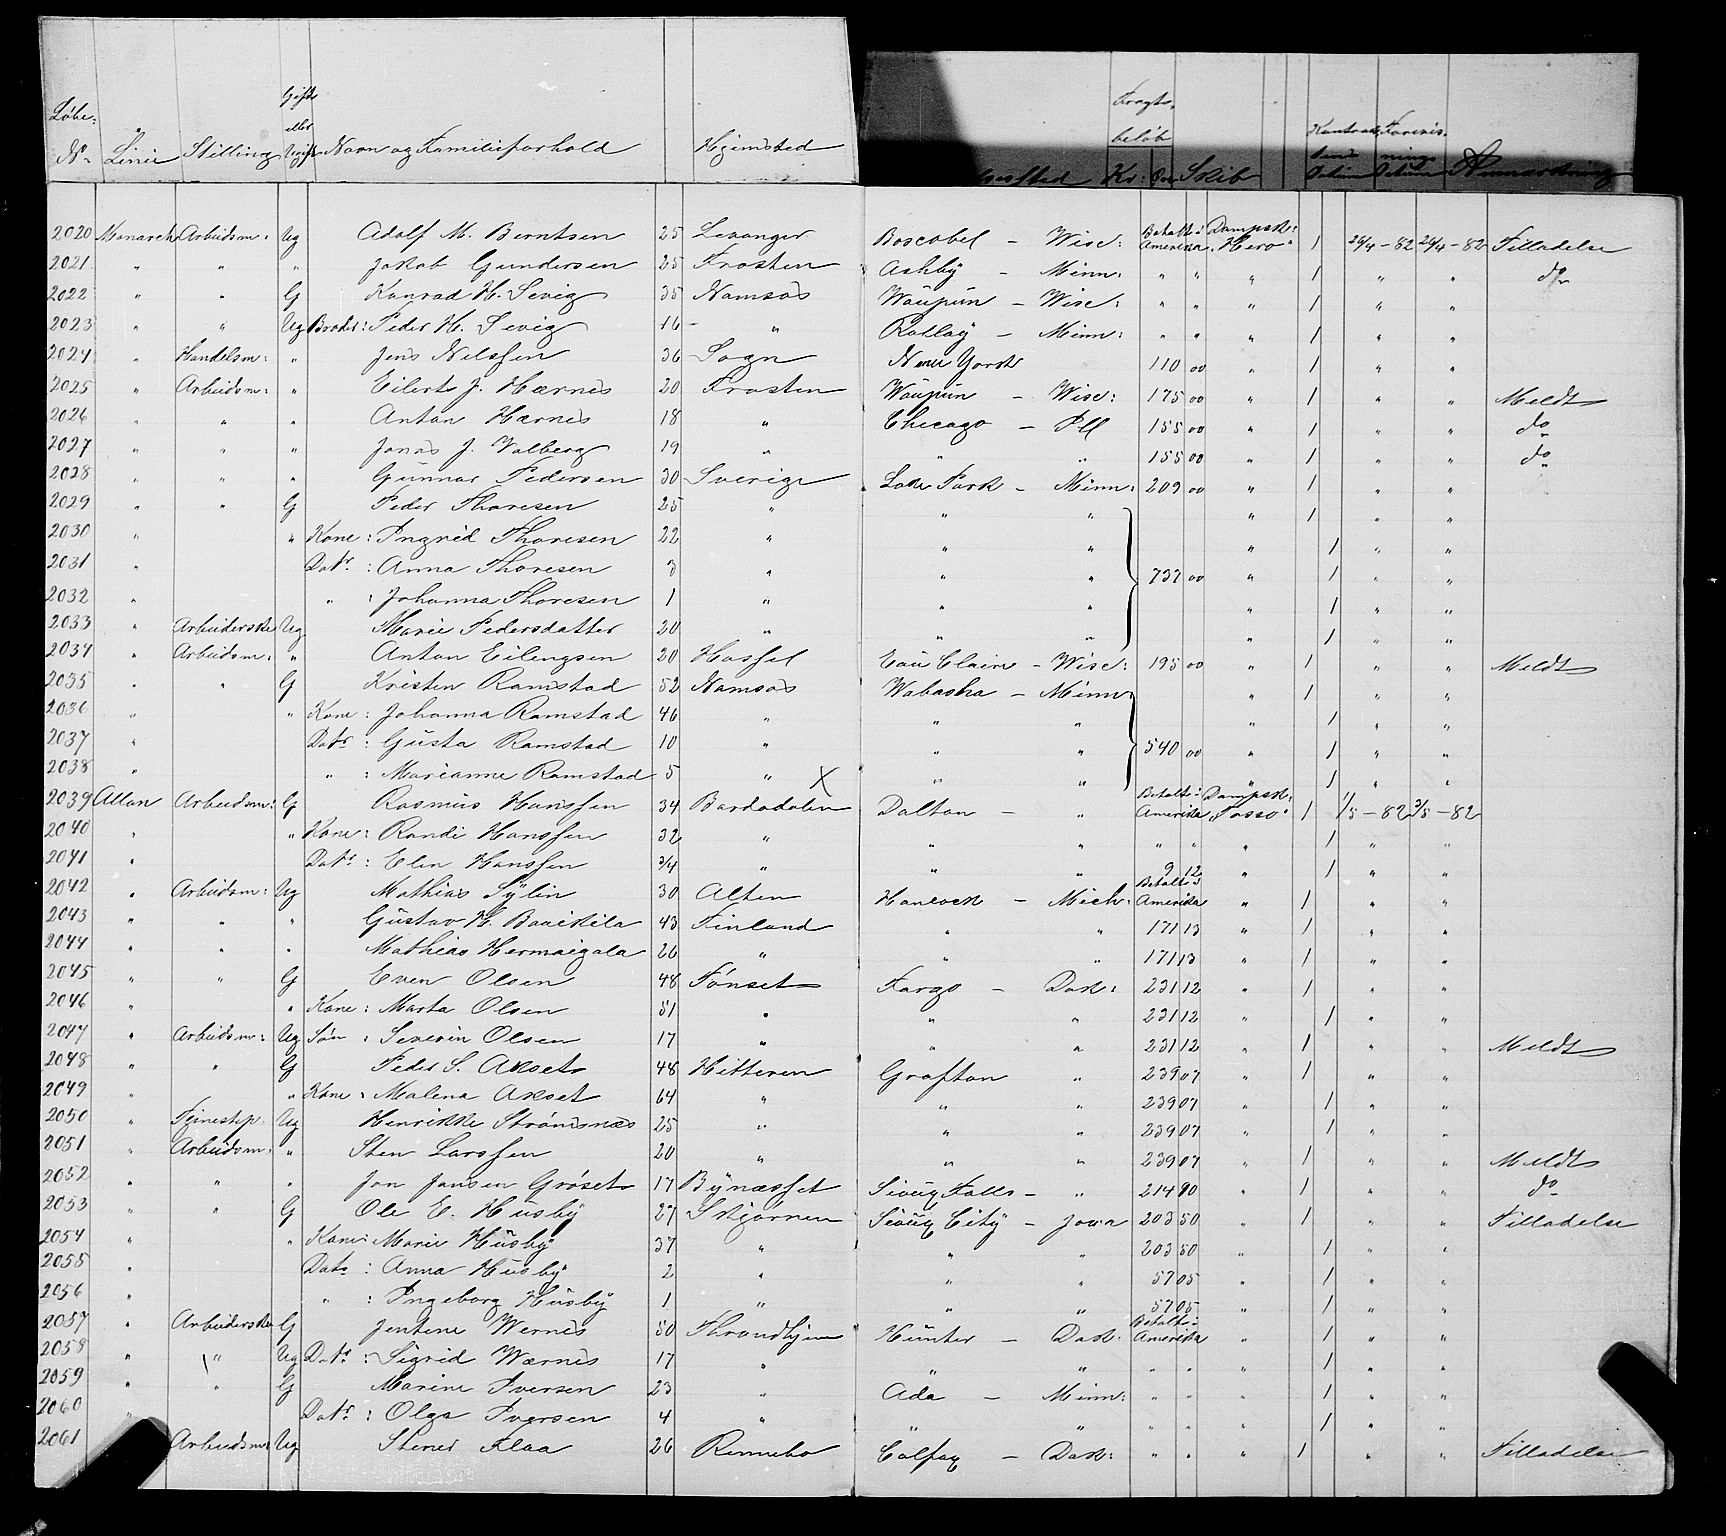 Løbe: Gift Fragt-
No. Linie Stilling eller Ugift Navn og Familieforhold Hjemsted beløb Kr: Øre Skib Datum Datum Anmærkning
2020 Monarch Arbeidsm: Ug Adolf M. Berntsen 25 Levanger Boscobel – Wisc: Betalt i Amerika Dampsk: "Hero" 1 26/4 – 82 26/4 – 82 Tilladelse
2021 " " " Jakob Gundersen 25 Frosten Ashby – Minn: " " " 1 " " do
2022 " " G Konrad H. Sevig 35 Namsos Waupun – Wisc: " " " 1 " "
2023 " " Ug Broder: Peder H. Sevig 16 " Rotlay – Minn: " " " 1 " "
2024 " Handelsm: " Jens Nilssen 36 Sogn New York 110 00 " 1 " "
2025 " Arbeidsm: " Eilert J. Hærnes 20 Frosten Waupun – Wisc: 175 00 " 1 " " Meldt
2026 " " " Anton Hærnes 18 " Chicago – Ill 155 00 " 1 " " do
2027 " " " Jonas J. Valberg 19 " " " 155 00 " 1 " " do
2028 " " " Gunnar Pedersen 30 Sverige Lake Park – Minn: 209 00 " 1 " "
2029 " " G Peder Thoresen 25 " " " " 1 " "
2030 " " Kone: Ingrid Thoresen 22 " " " " 1 " "
2031 " Datr: Anna Thoresen 3 " " " 737 00 " 1 " "
2032 " " : Johanna Thoresen 1 " " " " 1 " "
2033 " Arbeiderske Ug Marie Pedersdatter 20 " " " " 1 " "
2034 " Arbeidsm: " Anton Eilengsen 20 Hassel Eau Claire – Wisc: 195 00 " 1 " " Meldt
2035 " " G Kristen Ramstad 52 Namsos Wabasha – Minn " 1 " "
2036 " " Kone: Johanna Ramstad 46 " " " " 1 " "
2037 " Datr: Gusta Ramstad 10 " " " 540 00 " 1 " "
2038 " " : Marianne Ramstad 5 " X " " " 1 " "
2039 Allan Arbeidsm: G Rasmus Hanssen 34 Bardodalen Dalton – " Betalt i Amerika Dampsk: "Tasso" 1 1/5 – 82 3/5 – 82
2040 " " Kone: Randi Hanssen 32 " " " " " " 1 " "
2041 " Datr: Elen Hanssen 3/4 " " " 9 12 " 1 " "
2042 " Arbeidsm: Ug Mathias Sylin 30 Alten Hancock – Mich: Betalt i Amerika " 1 " "
2043 " " " Gustav H. Baaikila 43 Finland " " 171 13 " 1 " "
2044 " " " Mathias Hermaigala 26 " " " 171 13 " 1 " "
2045 " " G Even Olsen 48 Tønset Fargo – Dak: 231 12 " 1 " "
2046 " " Kone: Marta Olsen 51 " " " 231 12 " 1 " "
2047 " Arbeidsm: Ug Søn: Severin Olsen 17 " " " 231 12 " 1 " " Meldt
2048 " " G Peder S. Akset 48 Hitteren Grafton " 239 07 " 1 " "
2049 " " Kone: Malena Akset 64 " " " 239 07 " 1 " "
2050 " Tjenestp. Ug Henrikke Strømsnæs 25 " " " 239 07 " 1 " "
2051 " Arbeidsm: " Sten Larssen 20 " " " 239 07 " 1 " " Meldt
2052 " " " Jon Jansen Grøset 17 Bynæsset Sioux Falls – " 214 90 " 1 " " do
2053 " " G Ole E. Husby 27 Skjørnen Sioux City – Jova 203 50 " 1 " " Tilladelse
2054 " " Kone: Marie Husby 37 " " " 203 50 " 1 " "
2055 " Datr: Anna Husby 2 " " " 57 05 " 1 " "
2056 " " : Ingeborg Husby 1 " " " 57 05 " 1 " "
2057 " Arbeiderske G Jentine Wernes 50 Throndhjem Hunter – Dak: Betalt i Amerika " 1 " "
2058 " " Ug Datr: Sigrid Wærnes 17 " " " " " 1 " "
2059 " " G Marine Iversen 23 " Ada – Minn: " " " 1 " "
2060 " Datr: Olga Iversen 4 " " " " " " 1 " "
2061 Arbeidsm: Ug Stener Flaa 26 Rennebo Colfax – Dak: " " " 1 " " Tilladelse